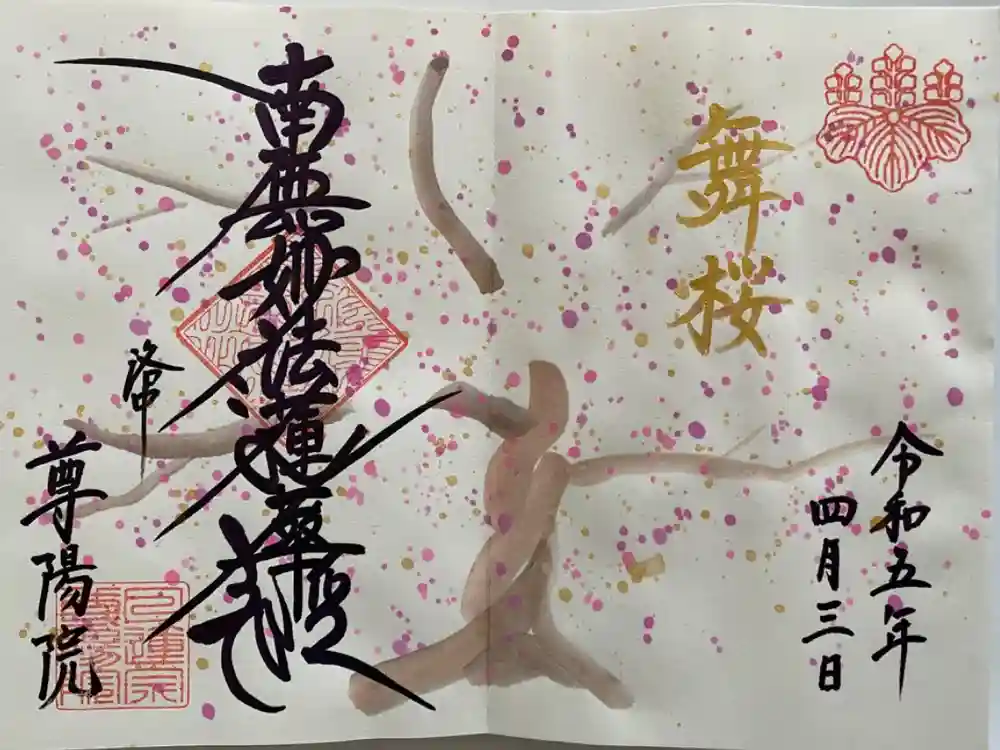 舞桜
令和五年
四月三日
南無妙法蓮華經
洛中
尊陽院